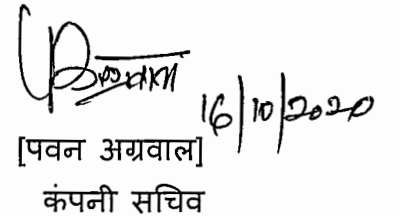 16/10/2020
[पवन अग्रवाल]
कंपनी सचिव